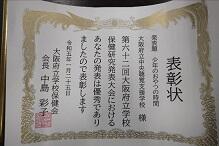 表彰状
発表題 少年のおやつの時間
大阪府立中央聴覚支援学校 様
第六十二回大阪府立学校
保健研究発表大会における
あなたの発表は優秀であり
ましたので表彰します
令和五年一月二十五日
大阪府立学校保健会
会長 中島 彩子